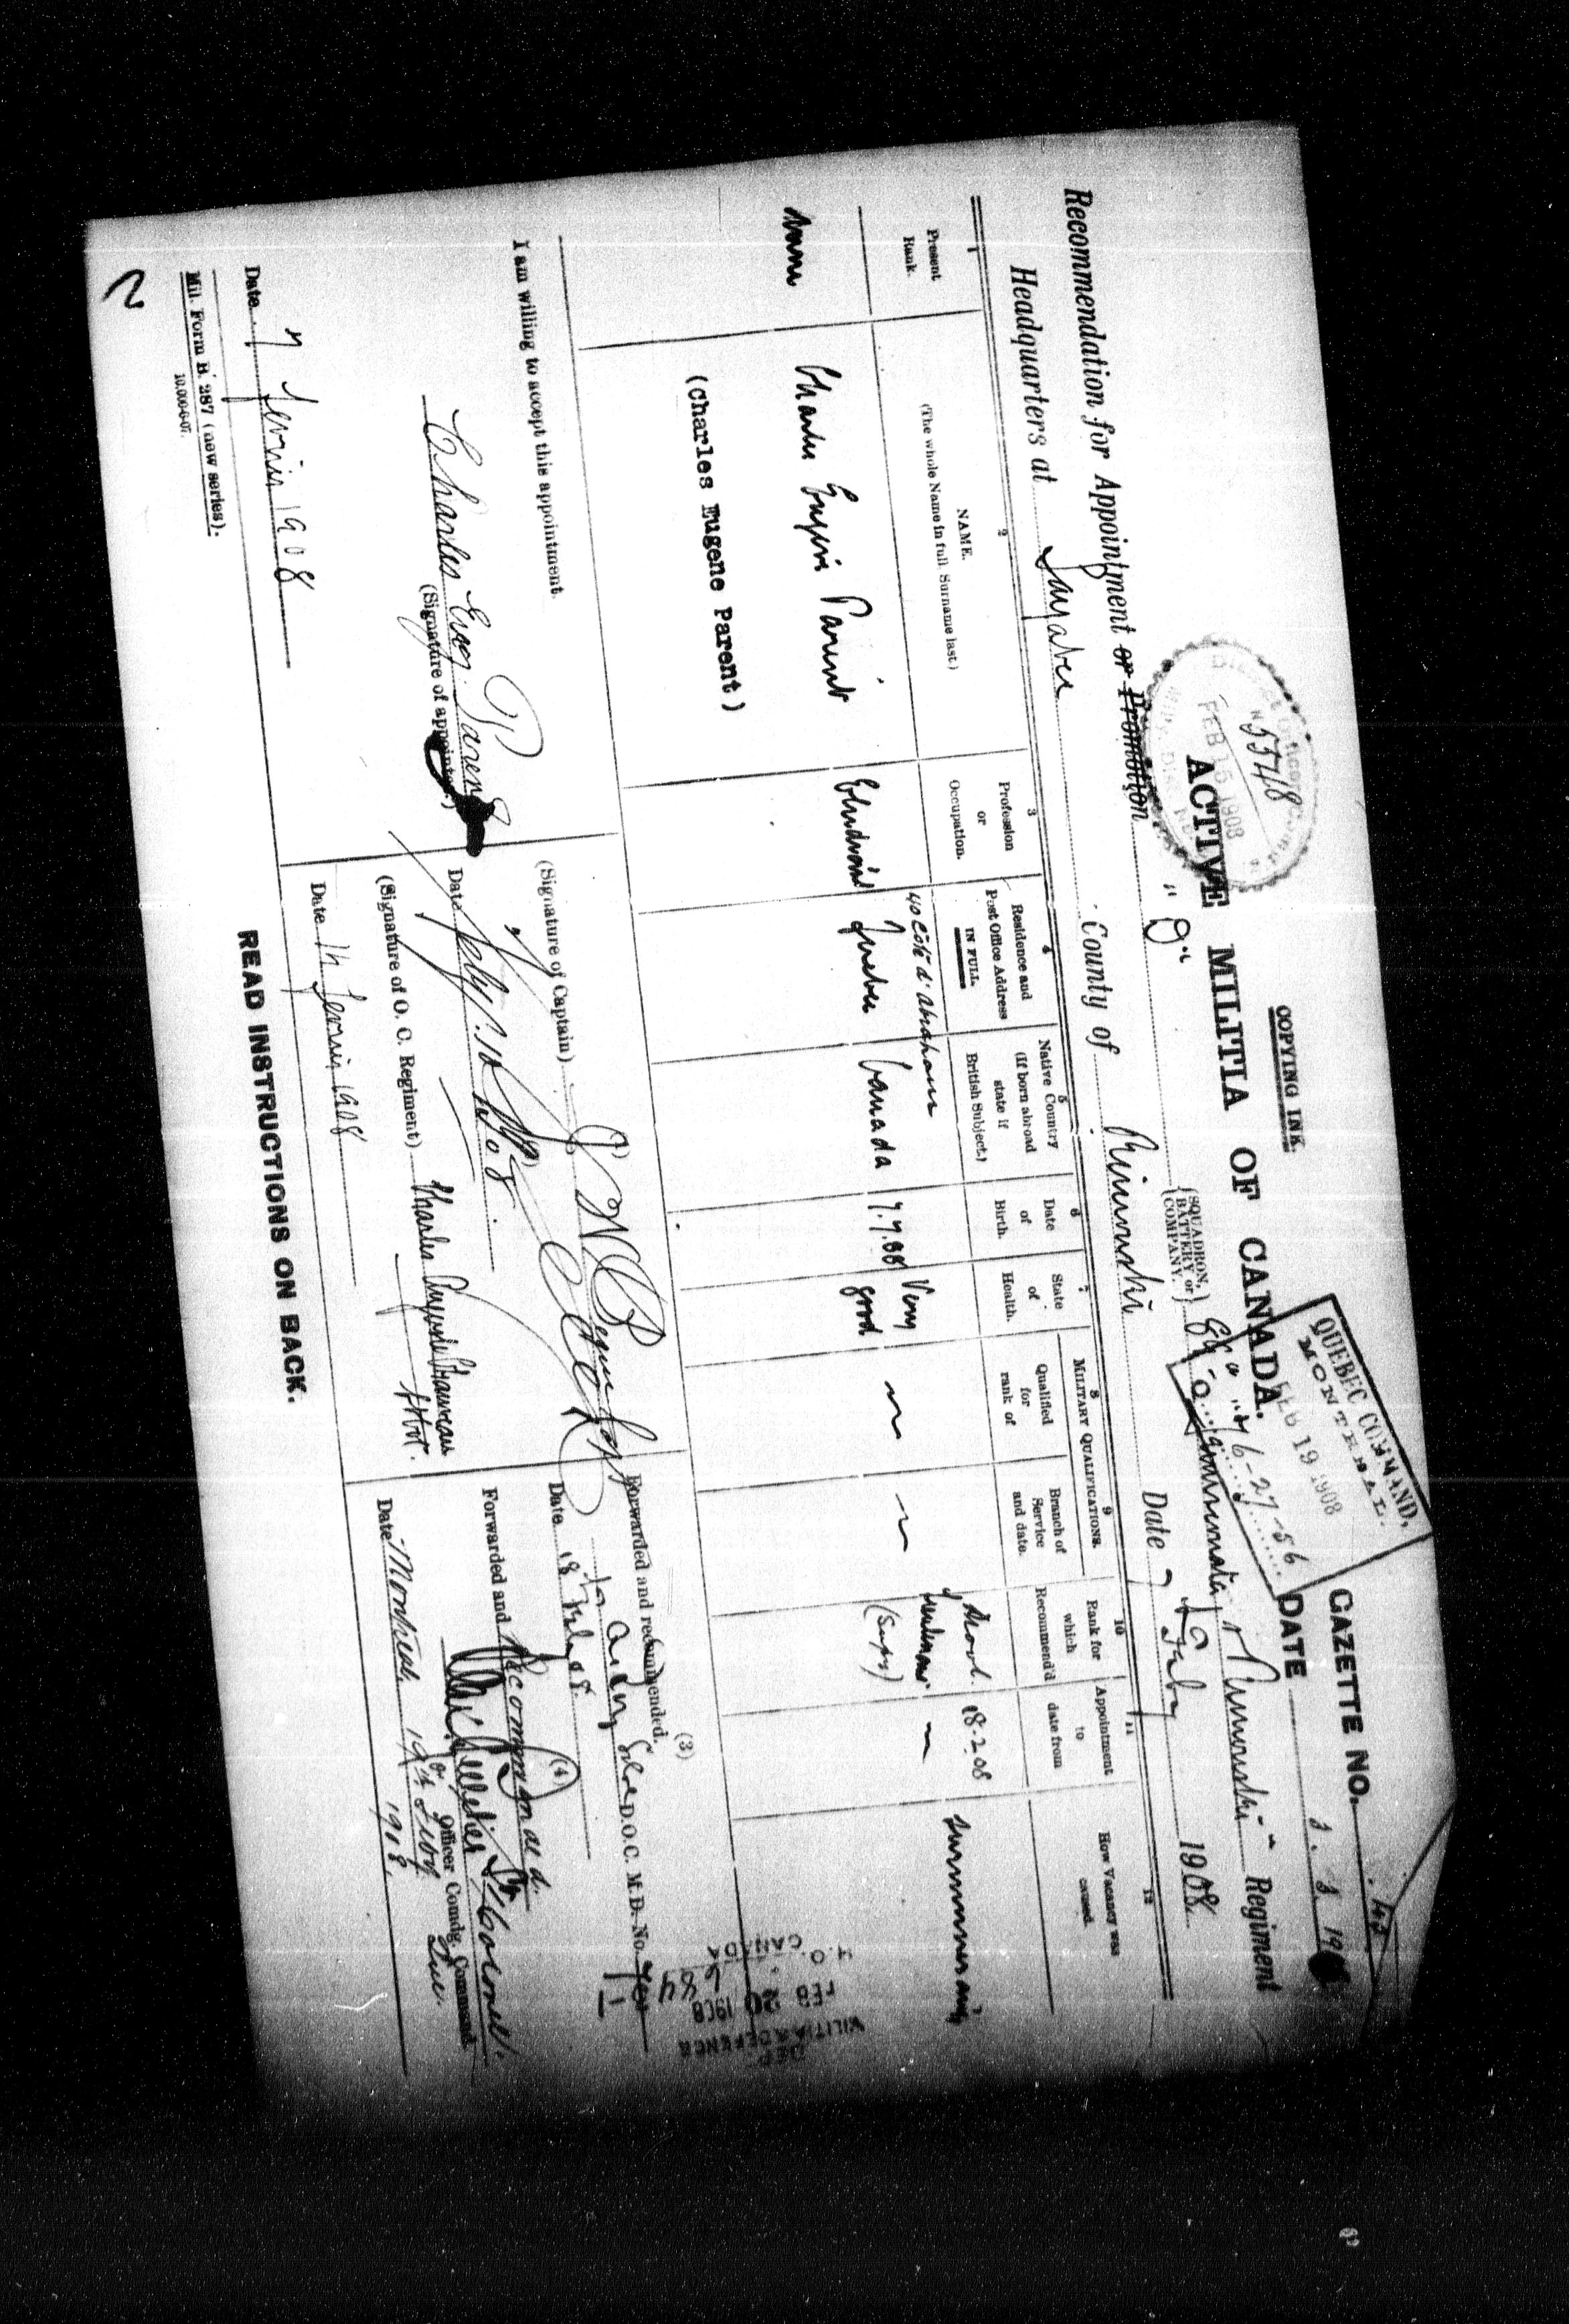 COPYING INK
GAZETTE NO.
DATE 3. 3. 190
QUEBEC COMMAND,
MONTREAL.
FEB 19 1908
District Officer
No 5548
FEB 15 1908
ACTIVE MILITIA OF CANADA.
Recommendation for Appointment or Promotion "D" {SQUADRON, BATTERY or COMPANY.} 89 Temiscouata & Rimouski Regiment
Headquarters at Sayabec County of Rimouski Date 7 Feby 1908
1 Present Rank.
2 NAME. (The whole Name in full. Surname last.)
3 Profession or Occupation.
4 Residence and Post Office Address IN FULL.
5 Native Country (If born abroad state if British Subject.)
6 Date of Birth.
7 State of Health.
MILITARY QUALIFICATIONS.
8 Qualified for rank of
9 Branch of Service and date.
10 Rank for which Recommend'd
11 Appointment to date from
12 How Vacancy was caused.
none
Charles Eugène Parent
Etudiant
40 Côte d'abraham
Quebec
Canada
7.7.88
Very good
Lieutenant
(Supy)
18-2-08
(Charles Eugene Parent)
DEP.
MILITIA & DEFENCE
FEB 20 1908
684
H.Q.
CANADA
I am willing to accept this appointment.
Charles Eug. Parent
(Signature of appointee.)
Date 7 fevrier 1908
(Signature of Captain)
Date
(Signature of O. C. Regiment) Charles Auguste Chauveau
Date 14 fevrier 1908
(3)
Forwarded and recommended.
D.O.C. M.D. No. 7
Date 18 Feb 08
(4)
Forwarded and Recommended.
Colonel.
Officer Comdg. Command
Date Montreal 19th Feby 1908.
READ INSTRUCTIONS ON BACK.
Mil. Form B. 287 (new series).
10,000-6-07.
2